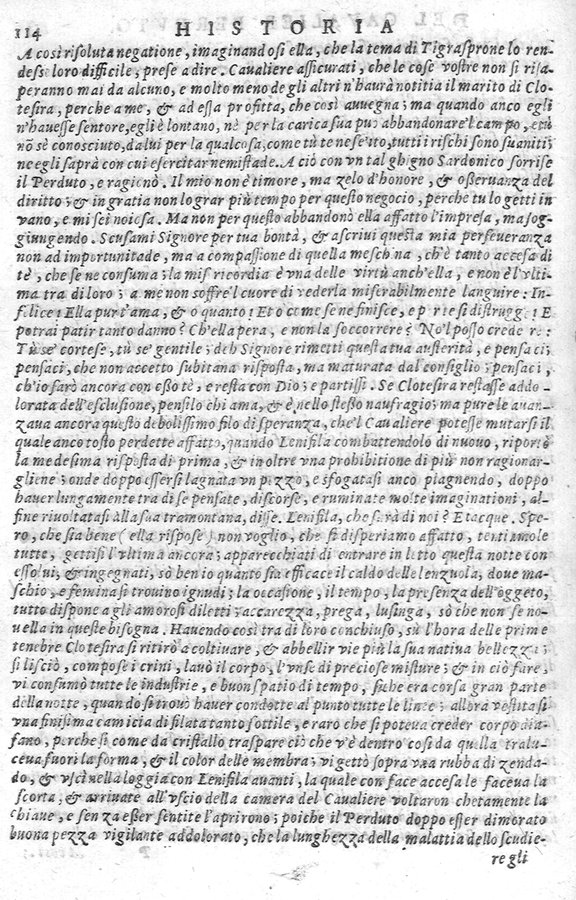 114 HISTORIA
A così risoluta negatione, imaginandosi ella, che la tema di Tigrasprone lo ren-
desse loro difficile; prese a dire. Cavaliere assicurati, che le cose vostre non si risa-
peranno mai da alcuno, e molto meno de gli altri n'haurà notitia il marito di Clo-
tesira, perche a me, & ad essa profitta, che così auuegna; ma quando anco egli
n'hauesse sentore, egli è lontano, nè per la carica sua può abbandonare'l campo, e tù
nõ sè conosciuto, da lui per la qualcosa, come tù te ne se'ito, tutti i rischi sono suaniti;
ne egli saprà con cui esercitar nemistade. A ciò con vn tal ghigno Sardonico sorrise
il Perduto, e ragionò. Il mio non è timore, ma zelo d'honore, & osseruanza del
diritto; & in gratia non lograr più tempo per questo negocio, perche tu lo getti in
vano, e mi sei noiosa. Ma non per questo abbandonò ella affatto l'impresa, ma sog-
giungendo. Scusami Signore per tua bontà, & ascriui questa mia perseueranza
non ad importunitade, ma a compassione di quella meschina, ch'è tanto accesa di
tè, che se ne consuma; la misericordia è vna delle virtù anch'ella, e non è l'vlti-
ma tra di loro; a me non soffre'l cuore di vederla miserabilmente languire: In-
felice! Ella pur t'ama, & o quanto! Et o come se ne finisce, e per te si distrugge! E
potrai patir tanto danno? Ch'ella pera, e non la soccorrere? No'l posso credere:
Tù se' cortese, tù se' gentile; deh Signore rimetti questa tua austerità, e pensaci;
pensaci, che non accetto subitana risposta, ma maturata dal consiglio; pensaci,
ch'io sarò ancora con esso tè, e resta con Dio; e partissi. Se Clotesira restasse addo-
lorata dell'esclusione, pensilo chi ama, & è nello stesso naufragio; ma pure le auan-
zaua ancora questo debolissimo filo di speranza, che'l Caualiere potesse mutarsi il
quale anco tosto perdette affatto, quando Lenifila combattendolo di nuouo, riportò
la medesima risposta di prima, & inoltre vna prohibitione di più non ragionar-
gliene; onde doppo essersi lagnata vn pezzo, e sfogatasi anco piagnendo, doppo
hauer lungamente tra di se pensate, discorse, e ruminate molte imaginationi, al-
fine riuoltatasi alla sua tramontana, disse. Lenifila, che sarà di noi? E tacque. Spe-
ro, che sia bene (ella rispose) non voglio, che si disperiamo affatto, tentiamole
tutte, gettisi l'vltima ancora; apparecchiati di entrare in letto questa notte con
esso lui, & ingegnati, sò ben io quanto sia efficace il caldo delle lenzuola, doue ma-
schio, e femina si trouino ignudi; la occasione, il tempo, la presenza dell'oggeto,
tutto dispone a gli amorosi diletti; accarezza, prega, lusinga, sò che non se no-
uella in queste bisogna. Hauendo così tra di loro conchiuso, sù l'hora delle prime
tenebre Clotesira si ritirò a coltiuare, & abbellir vie più la sua natiua bellezza;
si lisciò, compose i crini, lauò il corpo, l'vnse di preciose misture; & in ciò fare,
vi consumò tutte le industrie, e buon spatio di tempo, siche era corsa gran parte
della notte, quando si trouò hauer condotte al punto tutte le linee; allora vestitasi
vna finisima camicia di filata tanto sottile, e raro che si poteva creder corpo dia-
fano, perche sì come da cristallo traspare ciò che v'è dentro così da quella tralu-
ceua fuori la forma, & il color delle membra; vi gettò sopra vna rubba di zenda-
do, & vscì nella loggia con Lenifila auanti, la quale con face accesa le faceua la
scorta, & arriuate all'vscio della camera del Caualiere voltaron chetamente la
chiaue, e senza esser sentite l'aprirono; poiche il Perduto doppo esser dimorato
buona pezza vigilante addolorato, che la lunghezza della malattia dello scudie-
re gli